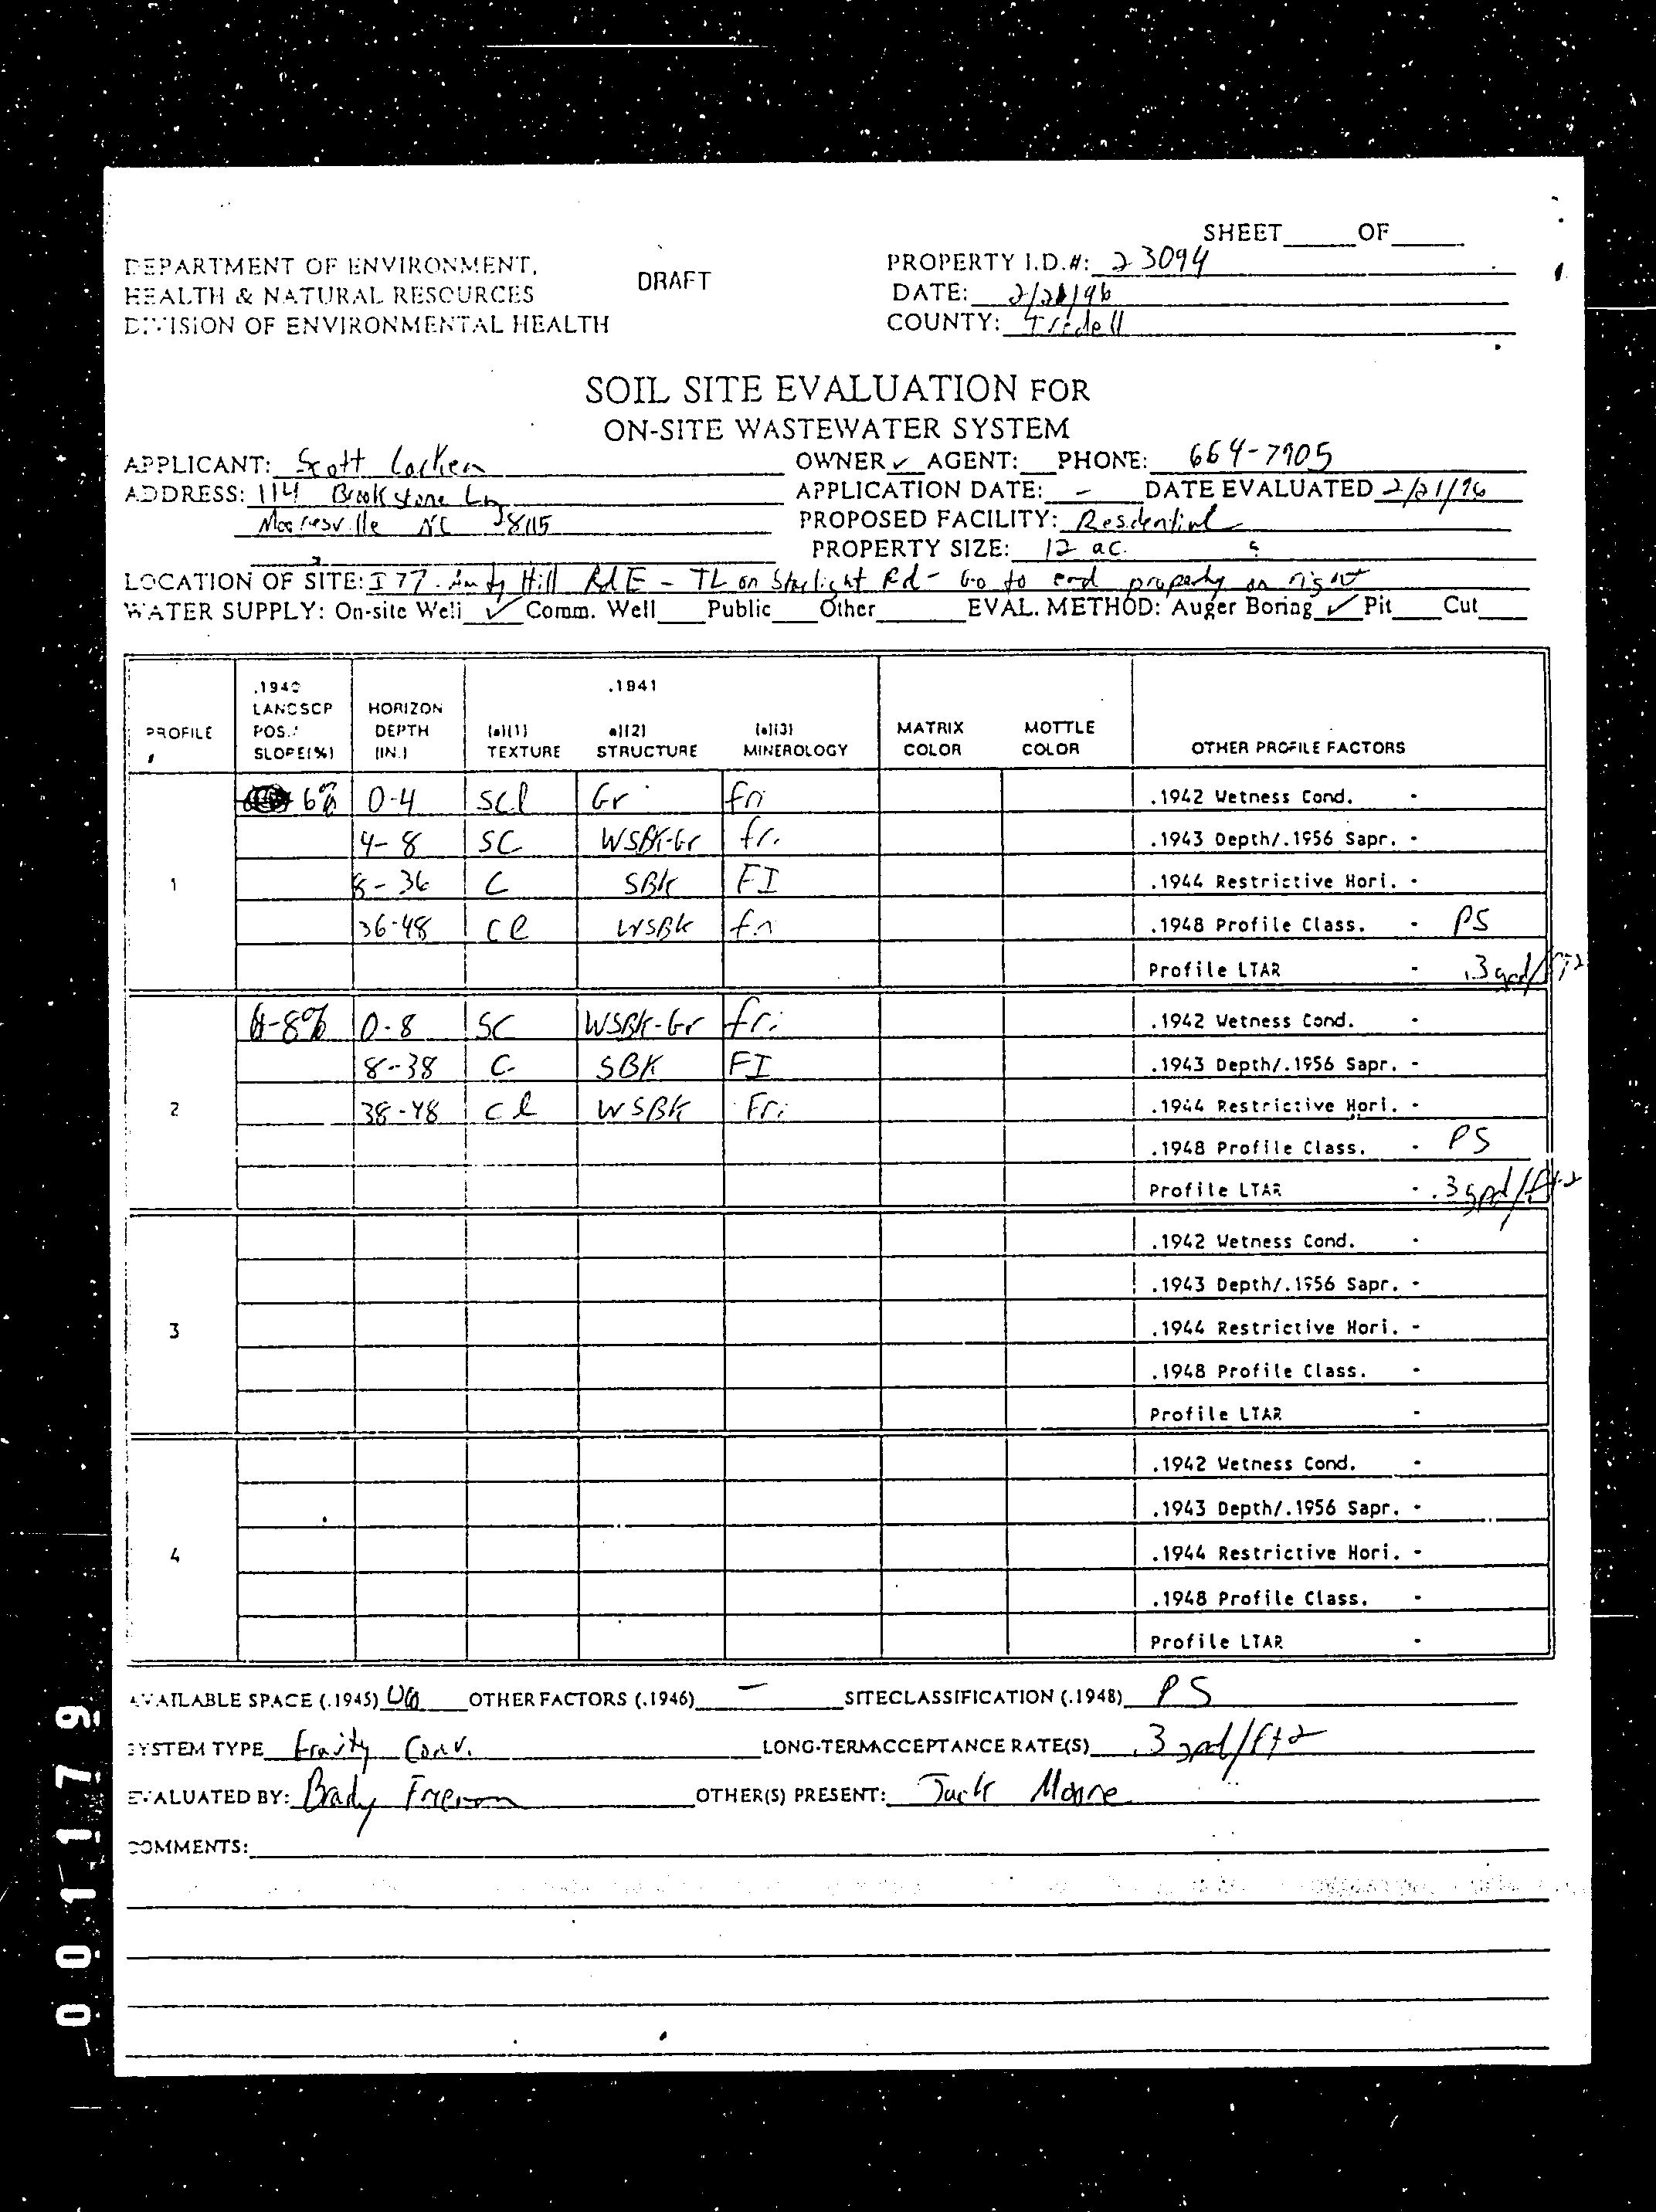 SHEET ____ OF ____
DEPARTMENT OF ENVIRONMENT,
HEALTH & NATURAL RESOURCES
DIVISION OF ENVIRONMENTAL HEALTH
DRAFT
PROPERTY I.D.#: 23094
DATE: 2/21/96
COUNTY: Iredell
SOIL SITE EVALUATION FOR
ON-SITE WASTEWATER SYSTEM
APPLICANT: Scott
OWNER ✓ AGENT: __ PHONE: 664-7905
ADDRESS: 114 Brookstone Ln
APPLICATION DATE: - DATE EVALUATED 2/21/96
Mooresville NC 28115
PROPOSED FACILITY: Residential
PROPERTY SIZE: 12 ac.
LOCATION OF SITE: I 77 - Hill Rd E - TL on Starlight Rd - Go to end property on right
WATER SUPPLY: On-site Well ✓ Comm. Well ___ Public ___ Other ___ EVAL. METHOD: Auger Boring ✓ Pit ___ Cut ___
PROFILE # .1940 LANDSCP POS./ SLOPE(%) HORIZON DEPTH (IN.) .1941 (a)(1) TEXTURE a)(2) STRUCTURE (a)(3) MINEROLOGY MATRIX COLOR MOTTLE COLOR OTHER PROFILE FACTORS
6% 0-4 scl Gr fri .1942 Wetness Cond. -
4-8 SC WSBK-Gr fri .1943 Depth/.1956 Sapr. -
1 8-36 C SBK FI .1944 Restrictive Hori. -
36-48 cl WSBK fri .1948 Profile Class. - PS
Profile LTAR - .3 gpd/ft2
-8% 0-8 SC WSBK-Gr fri .1942 Wetness Cond. -
8-38 C SBK FI .1943 Depth/.1956 Sapr. -
2 38-48 cl WSBK Fri .1944 Restrictive Hori. -
.1948 Profile Class. - PS
Profile LTAR - .3 gpd/ft2
.1942 Wetness Cond. -
.1943 Depth/.1956 Sapr. -
3 .1944 Restrictive Hori. -
.1948 Profile Class. -
Profile LTAR -
.1942 Wetness Cond. -
.1943 Depth/.1956 Sapr. -
4 .1944 Restrictive Hori. -
.1948 Profile Class. -
Profile LTAR -
AVAILABLE SPACE (.1945) OTHER FACTORS (.1946) - SITECLASSIFICATION (.1948) PS
SYSTEM TYPE Gravity Conv. LONG-TERM ACCEPTANCE RATE(S) .3 gpd/ft2
EVALUATED BY: Brady OTHER(S) PRESENT: Jack Moore
COMMENTS:
001179